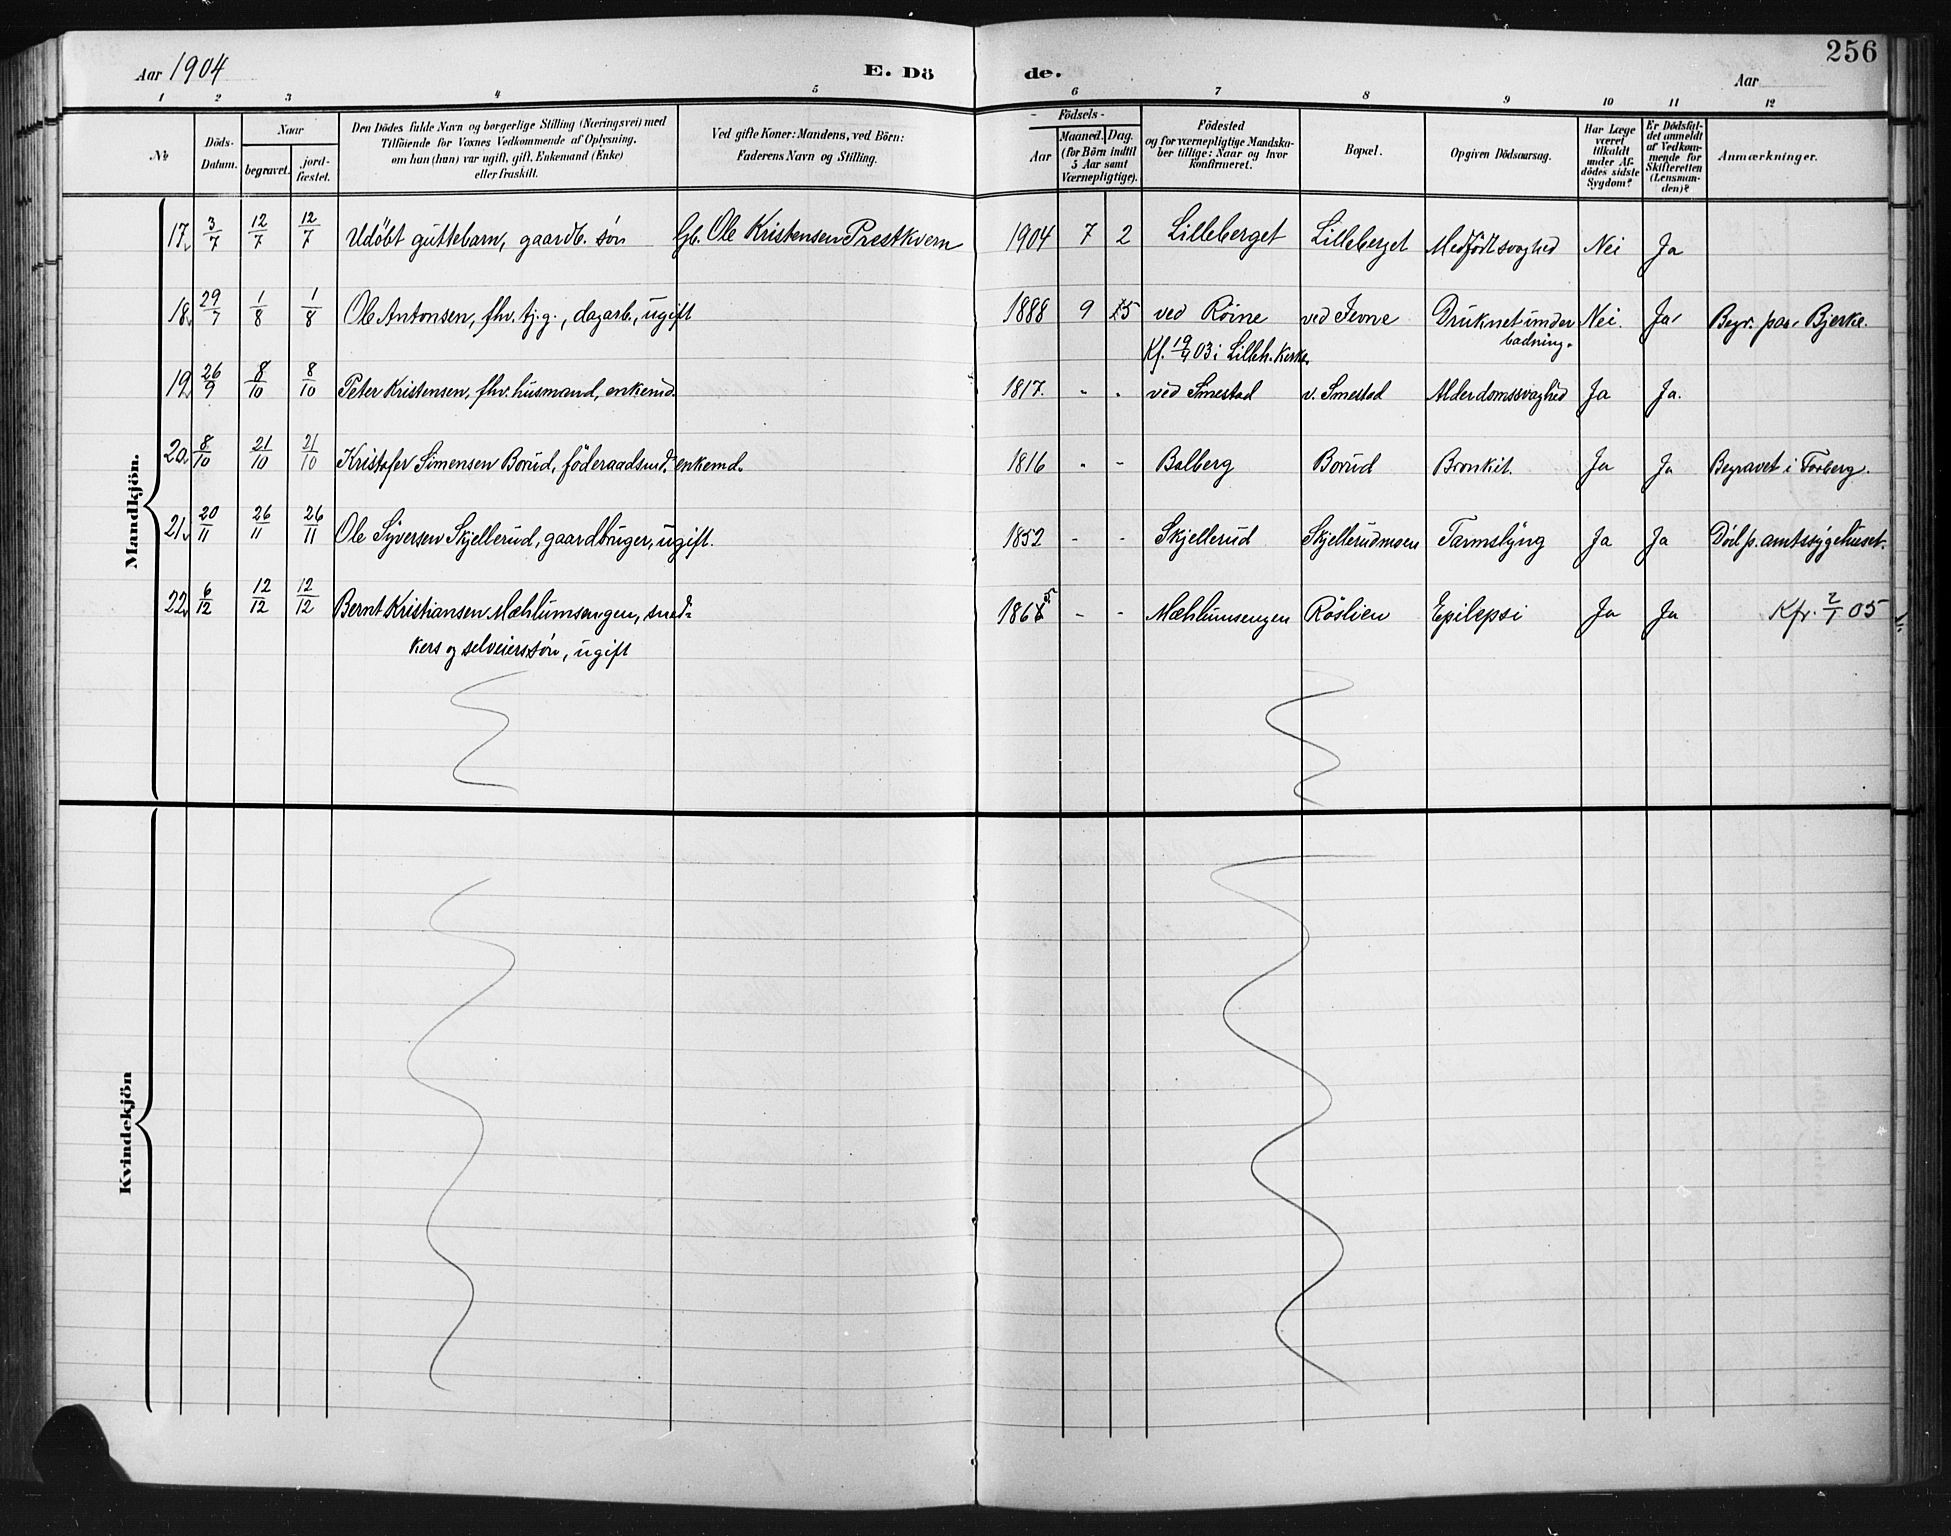 256
Aar 1904 E. Dö de. Aar
1 2 3 4 5 6 7 8 9 10 11 12
№
Döds-
Datum.
Naar
begravet.
jord-
fæstet.
Den Dödes fulde Navn og borgerlige Stilling (Næringsvei) med
Tilföiende for Voxnes Vedkommende af Oplysning,
om han (hun) var ugift, gift, Enkemand (Enke)
eller fraskilt.
Ved gifte Koner: Mandens, ved Börn:
Faderens Navn og Stilling.
Födsels-
Aar
Maaned. Dag.
(for Börn indtil
5 Aar samt
Værnepligtige).
Födested
og for værnepligtige Mandska-
ber tillige: Naar og hvor
konfirmeret.
Bopæl.
Opgiven Dödsaarsag.
Har Læge
været
tilkaldt
under Af-
dödes sidste
Sygdom?
Er Dödsfal-
det anmeldt
af Vedkom-
mende for
Skifteretten
(Lensman-
den)?
Anmærkninger.
Mandkjön.
17. 3/7 12/7 12/7 Udöbt guttebarn, gaardb. sön Gb. Ole Kristensen Prestkvern 1904 7 2 Lilleberget Lilleberget Medfödt svaghed Nei Ja
18. 29/7 1/8 1/8 Ole Antonsen, fhv. tj.g., dagarb., ugift 1888 9 15 ved Röine ved Jevne Druknet under Nei. Ja. Begr. paa Bjerke.
badning.
Kf. 19/4 03 i Lilleh. Kirke.
19. 26/9 8/10 8/10 Peter Kristensen, fhv. husmand, enkemd. 1817. - - ved Smestad v. Smestad Alderdomssvaghed Ja Ja.
20. 8/10 21/10 21/10 Kristofer Simensen Borud, föderaadsmd., enkemd. 1816 - - Balberg Borud Bronkit. Ja Ja Begravet i Faaberg.
21. 20/11 26/11 26/11 Ole Syversen Skjellerud, gaardbruger, ugift. 1852 - - Skjellerud Skjellerudmoen Tarmslyng Ja Ja Död p. amtssygehuset.
22. 6/12 12/12 12/12 Bernt Kristiansen Mæhlumsengen, sned- 1865 - - Mæhlumsengen Röslien Epilepsi Ja Ja Kfr. 2/1 05
kers og selveierssön, ugift
Kvindekjön